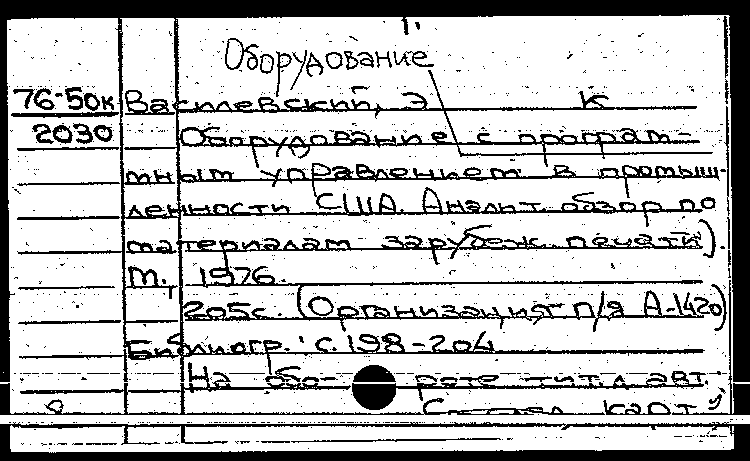 Оборудование
76-50к Василевский, Э К
2030 Оборудование с програм-
мным управлением в промыш-
ленности США. Аналит. обзор по
материалам зарубеж. печати).
М., 1976.
205с. (Организация п/я А-1420)
Библиогр.: с. 198-204
На обо- роте тит. л. авт.:
карт